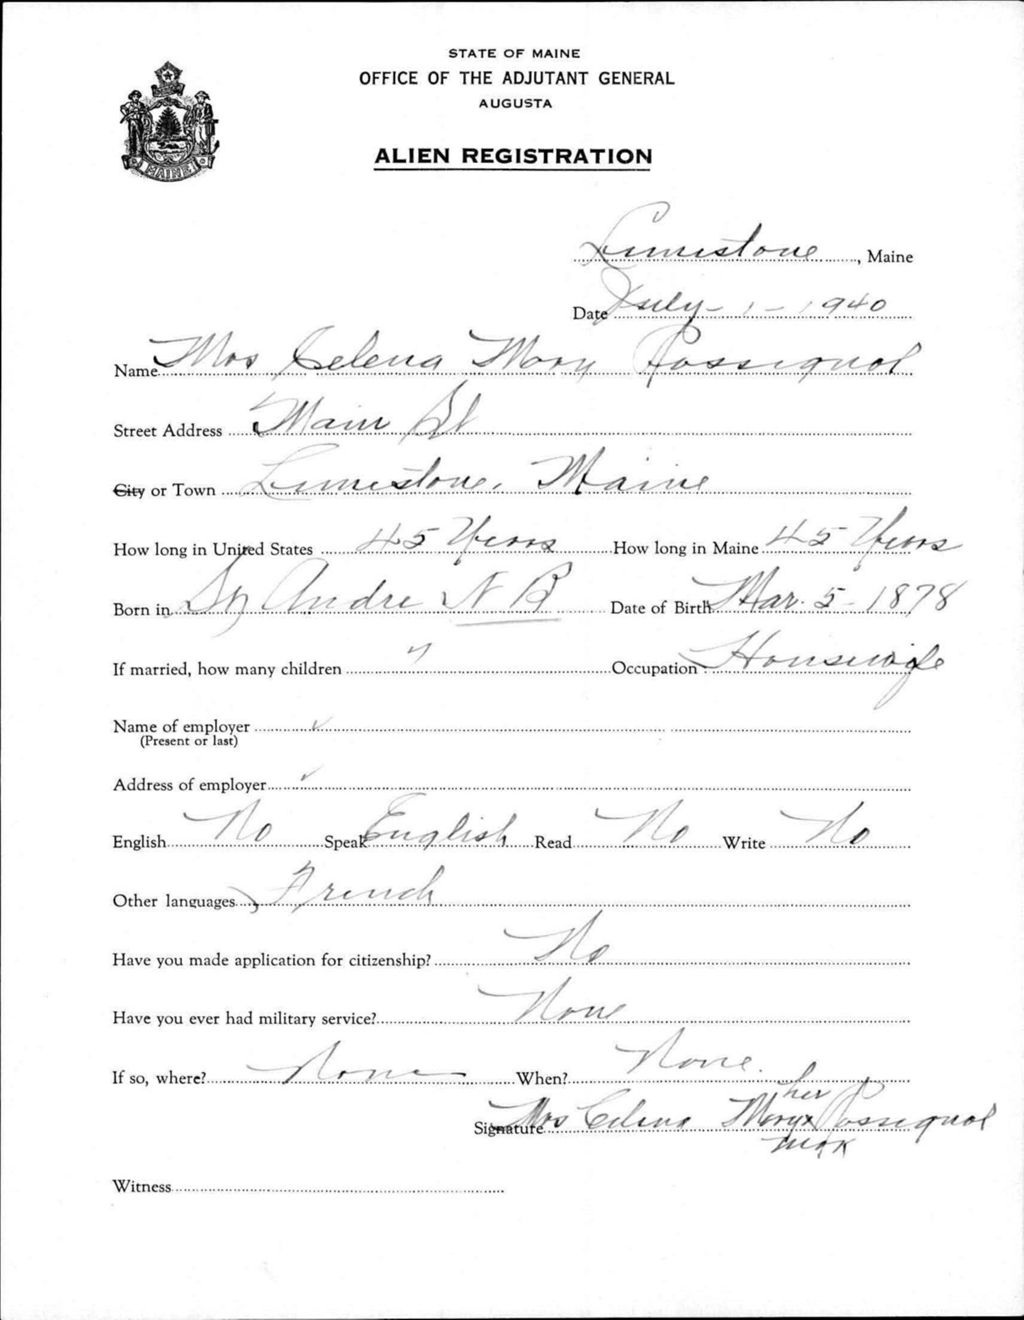 STATE OF MAINE
OFFICE OF THE ADJUTANT GENERAL
AUGUSTA
ALIEN REGISTRATION
MAINE
Limestone, Maine
Date July - 1 - 1940
Name Mrs Celena Mary Rossignol
Street Address Main St
City or Town Limestone, Maine
How long in United States 45 Years How long in Maine 45 Years
Born in St Andre N B Date of Birth Mar. 5 - 1878
If married, how many children Occupation Housewife
Name of employer
(Present or last)
Address of employer
English No Speak English Read No Write No
Other languages French
Have you made application for citizenship? No
Have you ever had military service? None
If so, where? None When? None.
her
Signature Mrs Celena Mary x Rossignol
mark
Witness